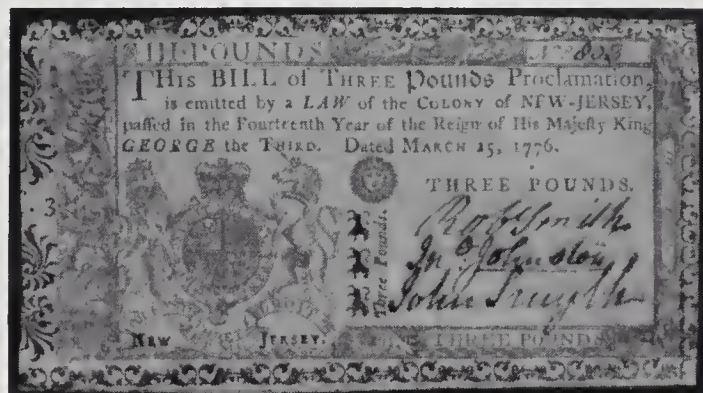 III POUNDS
THIS BILL of THREE Pounds Proclamation,
is emitted by a LAW of the COLONY of NEW-JERSEY,
paſſed in the Fourteenth Year of the Reign of His Majeſty King
GEORGE the THIRD. Dated MARCH 25, 1776.
THREE POUNDS.
3
Robt Smith
Jno Johnston
Three Pounds.
John Smyth
NEW JERSEY.
THREE POUNDS